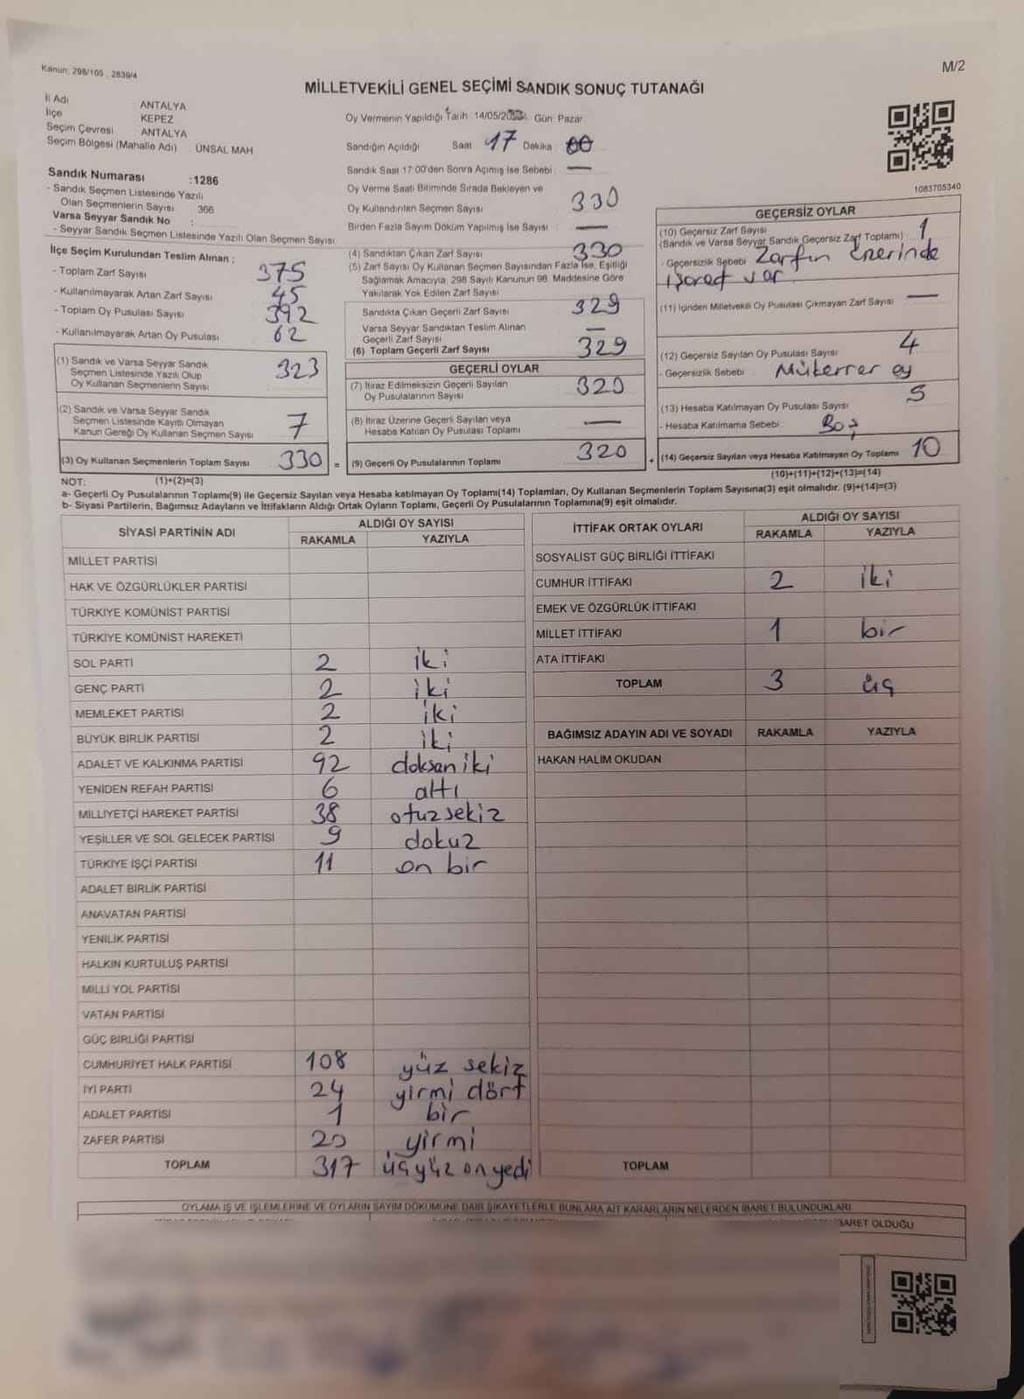 Kanun: 298/105 , 2839/4
M/2
MİLLETVEKİLİ GENEL SEÇİMİ SANDIK SONUÇ TUTANAĞI
İl Adı : ANTALYA
İlçe : KEPEZ
Seçim Çevresi : ANTALYA
Seçim Bölgesi (Mahalle Adı) : ÜNSAL MAH
Sandık Numarası :1286
- Sandık Seçmen Listesinde Yazılı
Olan Seçmenlerin Sayısı : 366
Varsa Seyyar Sandık No :
- Seyyar Sandık Seçmen Listesinde Yazılı Olan Seçmen Sayısı:
İlçe Seçim Kurulundan Teslim Alınan ;
- Toplam Zarf Sayısı 375
- Kullanılmayarak Artan Zarf Sayısı 45
- Toplam Oy Pusulası Sayısı 392
- Kullanılmayarak Artan Oy Pusulası 62
(1) Sandık ve Varsa Seyyar Sandık
Seçmen Listesinde Yazılı Olup
Oy Kullanan Seçmenlerin Sayısı 323
(2) Sandık ve Varsa Seyyar Sandık
Seçmen Listesinde Kayıtlı Olmayan
Kanun Gereği Oy Kullanan Seçmen Sayısı 7
(3) Oy Kullanan Seçmenlerin Toplam Sayısı 330 =
(1)+(2)=(3)
Oy Vermenin Yapıldığı Tarih: 14/05/ Gün: Pazar
Sandığın Açıldığı Saat: 17 Dakika: 00
Sandık Saat 17:00'den Sonra Açımış İse Sebebi : —
Oy Verme Saati Bitiminde Sırada Bekleyen ve
Oy Kullandırılan Seçmen Sayısı 330
Birden Fazla Sayım Döküm Yapılmış İse Sayısı : —
(4) Sandıktan Çıkan Zarf Sayısı 330
(5) Zarf Sayısı Oy Kullanan Seçmen Sayısından Fazla İse, Eşitliği
Sağlamak Amacıyla, 298 Sayılı Kanunun 98. Maddesine Göre
Yakılarak Yok Edilen Zarf Sayısı
Sandıkta Çıkan Geçerli Zarf Sayısı 329
Varsa Seyyar Sandıktan Teslim Alınan
Geçerli Zarf Sayısı —
(6) Toplam Geçerli Zarf Sayısı 329
GEÇERLİ OYLAR
(7) İtiraz Edilmeksizin Geçerli Sayılan
Oy Pusulalarının Sayısı 320
(8) İtiraz Üzerine Geçerli Sayılan veya
Hesaba Katılan Oy Pusulası Toplamı —
(9) Geçerli Oy Pusulalarının Toplamı 320 +
1083705340
GEÇERSİZ OYLAR
(10) Geçersiz Zarf Sayısı
(Sandık ve Varsa Seyyar Sandık Geçersiz Zarf Toplamı) 1
- Geçersizlik Sebebi Zarfın üzerinde
işaret var
(11) İçinden Milletvekili Oy Pusulası Çıkmayan Zarf Sayısı —
(12) Geçersiz Sayılan Oy Pusulası Sayısı 4
- Geçersizlik Sebebi Mükerrer oy
(13) Hesaba Katılmayan Oy Pusulası Sayısı 5
- Hesaba Katılmama Sebebi Boş
(14) Geçersiz Sayılan veya Hesaba Katılmayan Oy Toplamı 10
(10)+(11)+(12)+(13)=(14)
NOT:
a- Geçerli Oy Pusulalarının Toplamı(9) ile Geçersiz Sayılan veya Hesaba katılmayan Oy Toplamı(14) Toplamları, Oy Kullanan Seçmenlerin Toplam Sayısına(3) eşit olmalıdır. (9)+(14)=(3)
b- Siyasi Partilerin, Bağımsız Adayların ve İttifakların Aldığı Ortak Oyların Toplamı, Geçerli Oy Pusulalarının Toplamına(9) eşit olmalıdır.
SİYASİ PARTİNİN ADI ALDIĞI OY SAYISI
RAKAMLA YAZIYLA
MİLLET PARTİSİ
HAK VE ÖZGÜRLÜKLER PARTİSİ
TÜRKİYE KOMÜNİST PARTİSİ
TÜRKİYE KOMÜNİST HAREKETİ
SOL PARTİ 2 iki
GENÇ PARTİ 2 iki
MEMLEKET PARTİSİ 2 iki
BÜYÜK BİRLİK PARTİSİ 2 iki
ADALET VE KALKINMA PARTİSİ 92 doksan iki
YENİDEN REFAH PARTİSİ 6 altı
MİLLİYETÇİ HAREKET PARTİSİ 38 otuz sekiz
YEŞİLLER VE SOL GELECEK PARTİSİ 9 dokuz
TÜRKİYE İŞÇİ PARTİSİ 11 on bir
ADALET BİRLİK PARTİSİ
ANAVATAN PARTİSİ
YENİLİK PARTİSİ
HALKIN KURTULUŞ PARTİSİ
MİLLİ YOL PARTİSİ
VATAN PARTİSİ
GÜÇ BİRLİĞİ PARTİSİ
CUMHURİYET HALK PARTİSİ 108 yüz sekiz
İYİ PARTİ 24 yirmi dört
ADALET PARTİSİ 1 bir
ZAFER PARTİSİ 20 yirmi
TOPLAM 317 üçyüz on yedi
İTTİFAK ORTAK OYLARI ALDIĞI OY SAYISI
RAKAMLA YAZIYLA
SOSYALİST GÜÇ BİRLİĞİ İTTİFAKI
CUMHUR İTTİFAKI 2 iki
EMEK VE ÖZGÜRLÜK İTTİFAKI
MİLLET İTTİFAKI 1 bir
ATA İTTİFAKI
TOPLAM 3 üç
BAĞIMSIZ ADAYIN ADI VE SOYADI RAKAMLA YAZIYLA
HAKAN HALIM OKUDAN
TOPLAM
OYLAMA İŞ VE İŞLEMLERİNE VE OYLARIN SAYIM DÖKÜMÜNE DAİR ŞİKAYETLERLE BUNLARA AİT KARARLARIN NELERDEN İBARET BULUNDUKLARI
OLDUĞU